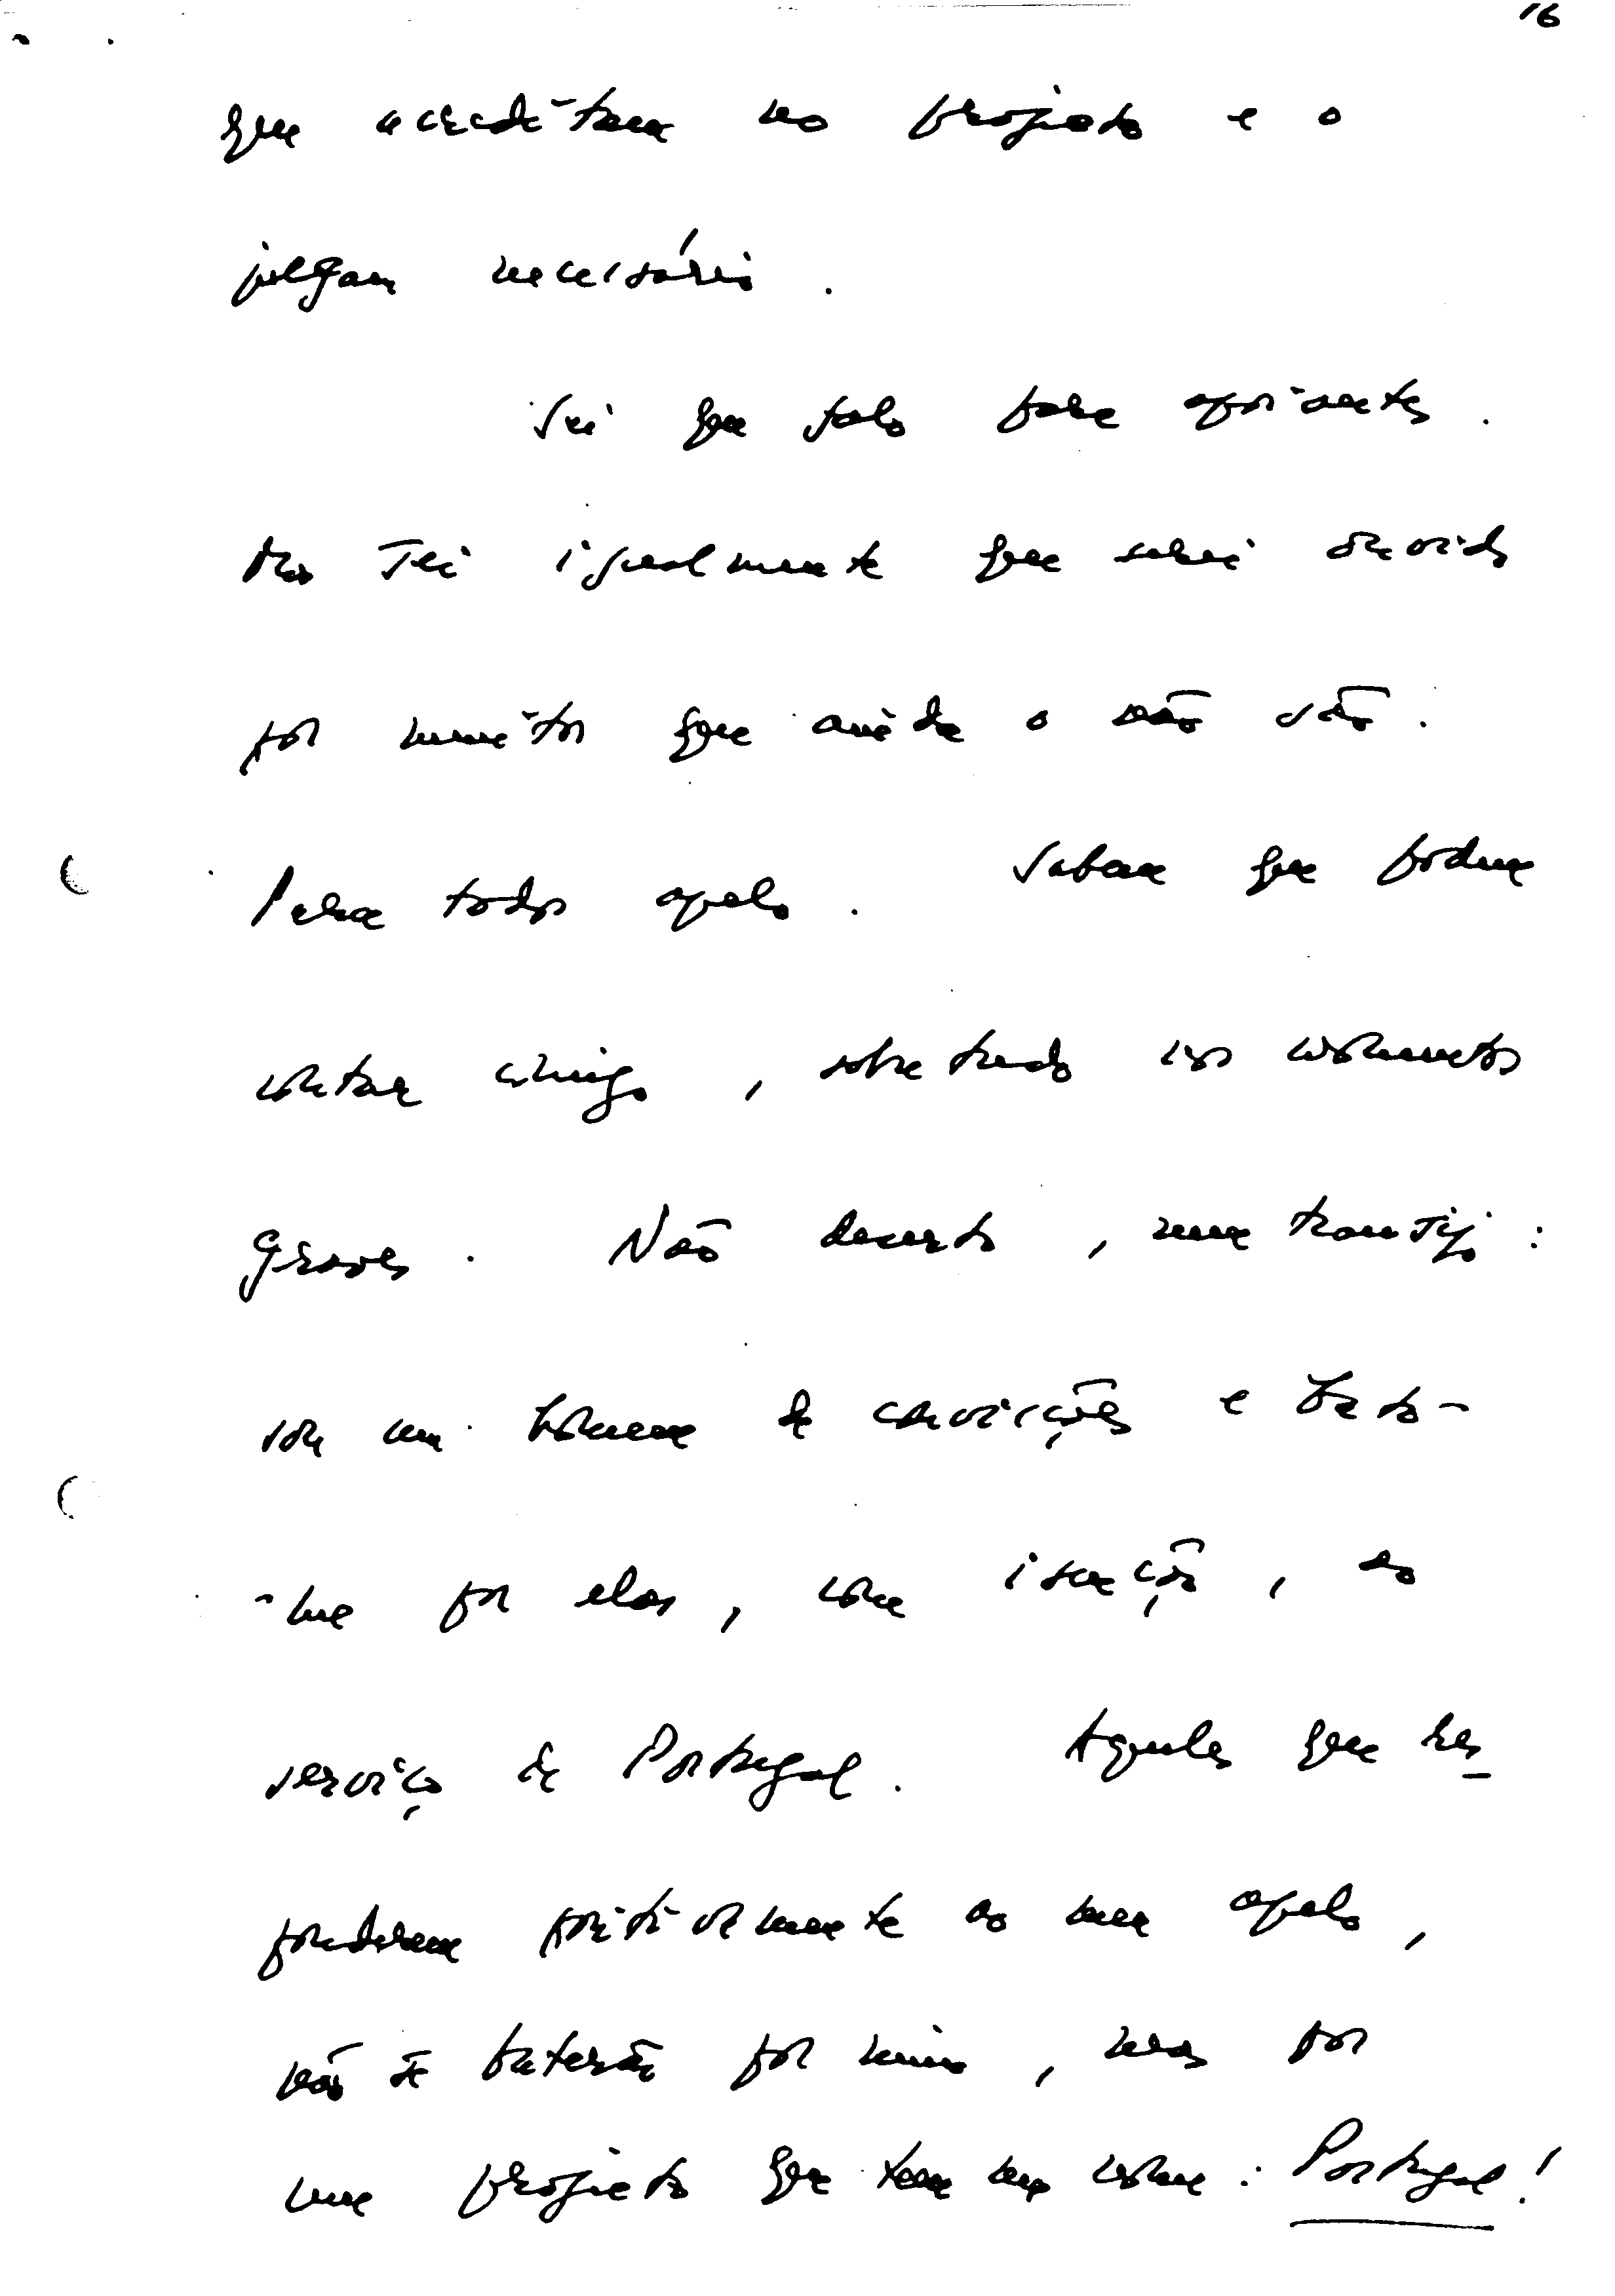 16
que acreditam no projecto e o
julgam necessário.
Sei que falo para apoiantes.
Mas sei igualmente que serei ouvido
por muitos que ainda o não são.
Para todos apelo. Sabem que podem
contar comigo, sobretudo nos momentos
graves. Não deserto, nem transijo:
sou um homem de convicções e bato-
-me por elas, com isenção, ao
serviço de Portugal. Aqueles que res
ponderem positivamente ao meu apelo,
não se baterão por mim, mas por
um projecto que tem um nome: Portugal!